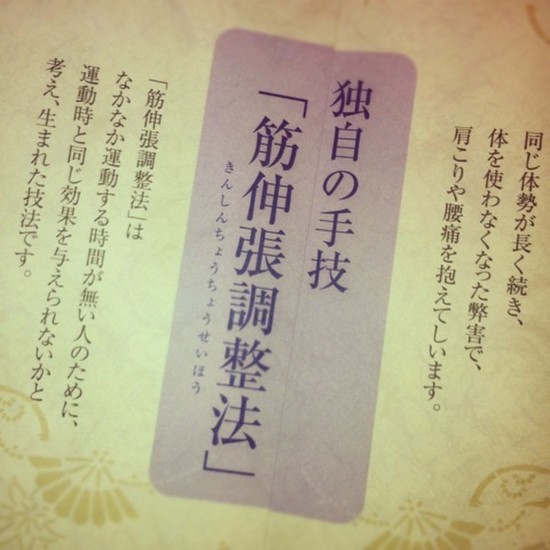 同じ体勢が長く続き、
体を使わなくなった弊害で、
肩こりや腰痛を抱えてしいます。
独自の手技
「筋伸張調整法」
きんしんちょうちょうせいほう
「筋伸張調整法」は
なかなか運動する時間が無い人のために、
運動時と同じ効果を与えられないかと
考え、生まれた技法です。